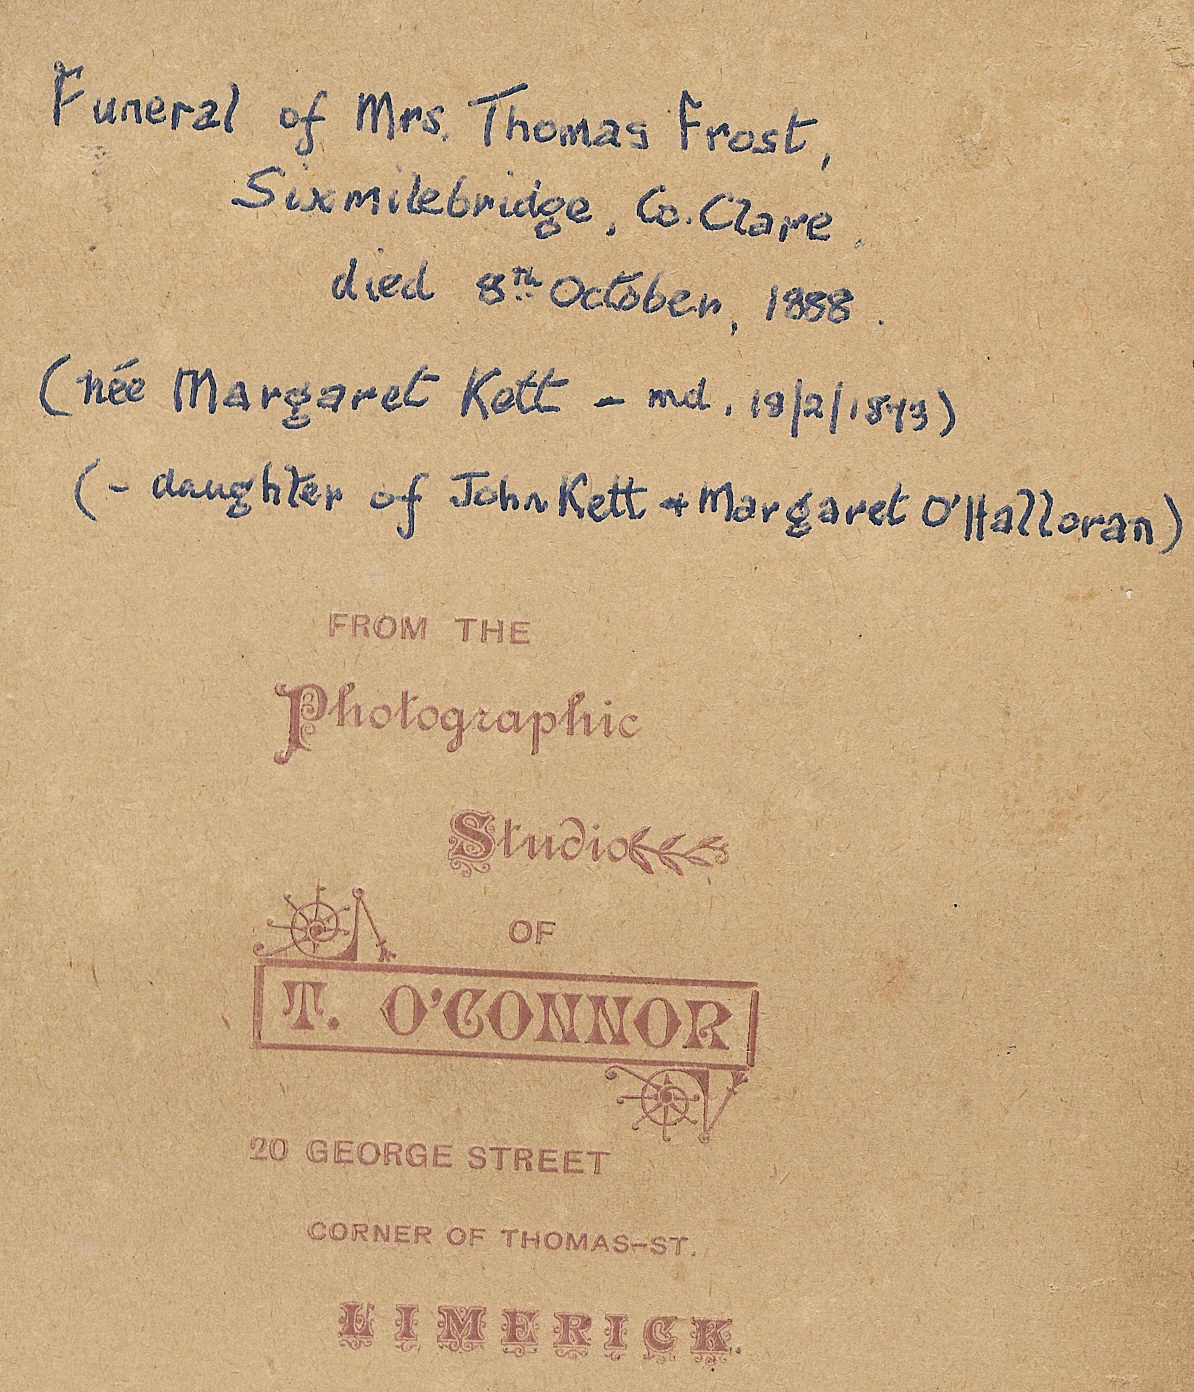 Funeral of Mrs. Thomas Frost,
Sixmilebridge, Co. Clare.
died 8th October, 1888.
(née Margaret Kett – md. 18/2/1873)
(- daughter of John Kett + Margaret O'Halloran)
FROM THE
Photographic
Studio
OF
T. O'CONNOR
20 GEORGE STREET
CORNER OF THOMAS-ST.
LIMERICK.